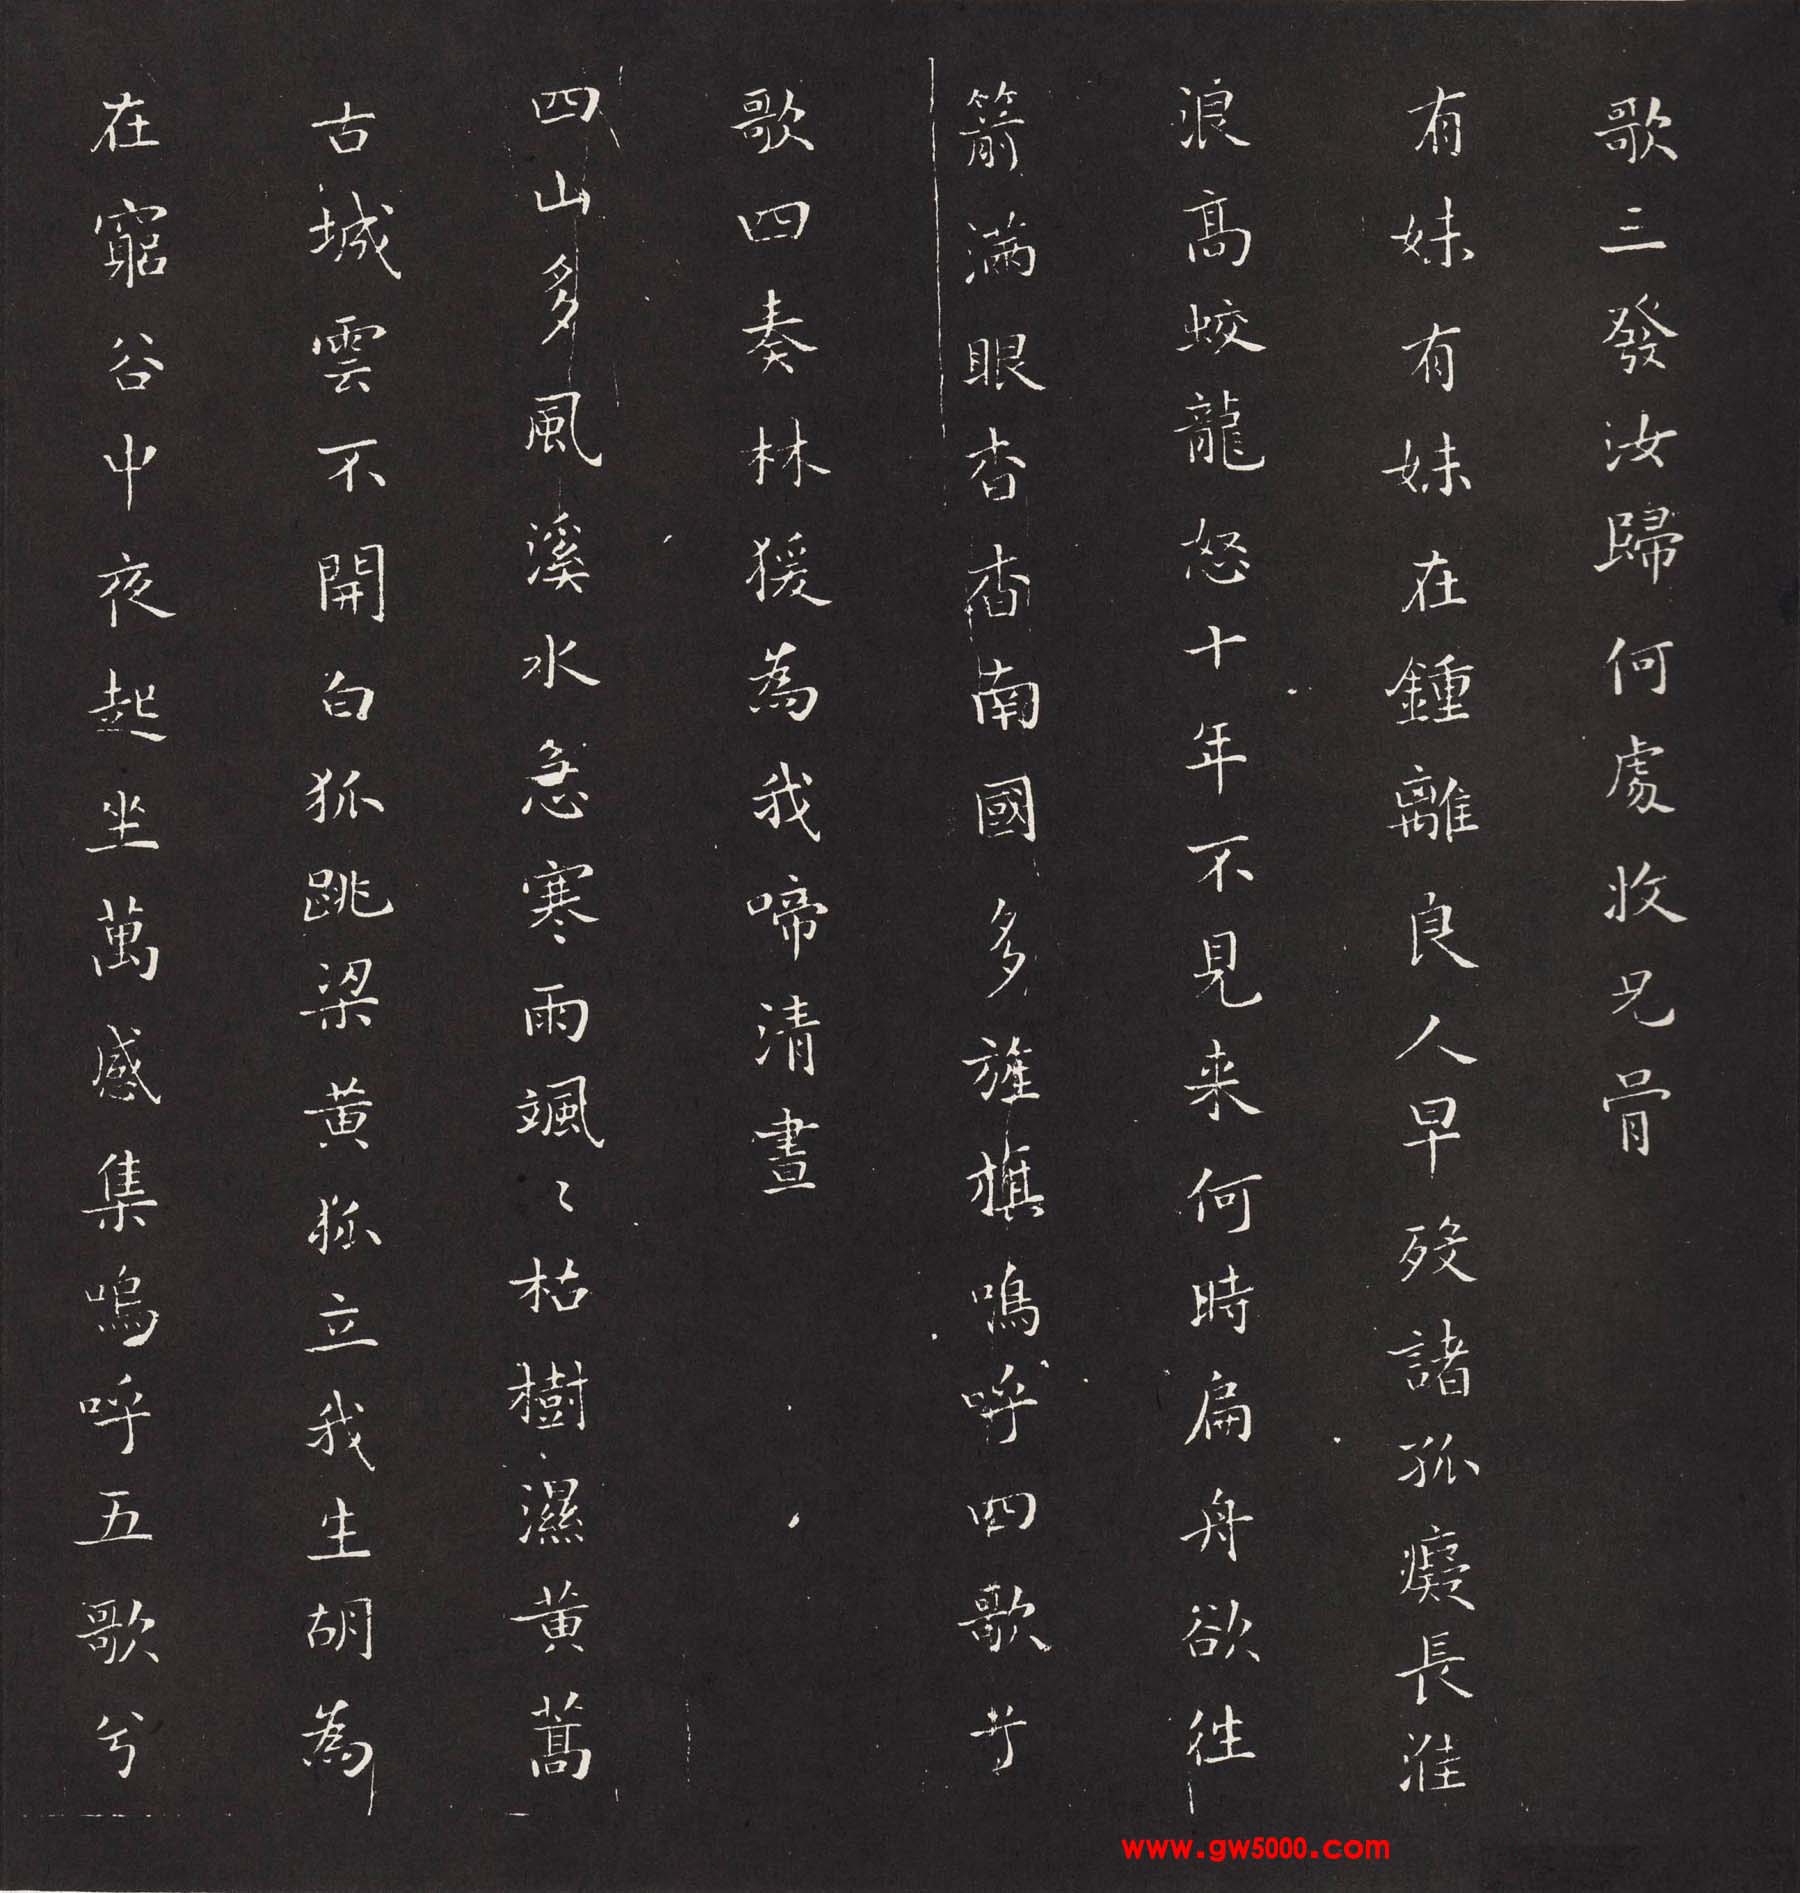 歌三發汝歸何處收兄骨
有妹有妹在鍾離良人早歿諸孤癡長淮
浪高蛟龍怒十年不見来何時扁舟欲往
箭滿眼杳杳南國多旌旗嗚呼四歌兮
歌四奏林猨為我啼清晝
四山多風溪水急寒雨颯〻枯樹濕黄蒿
古城雲不開白狐跳梁黄狐立我生胡為
在窮谷中夜起坐萬感集嗚呼五歌兮
www.gw5000.com